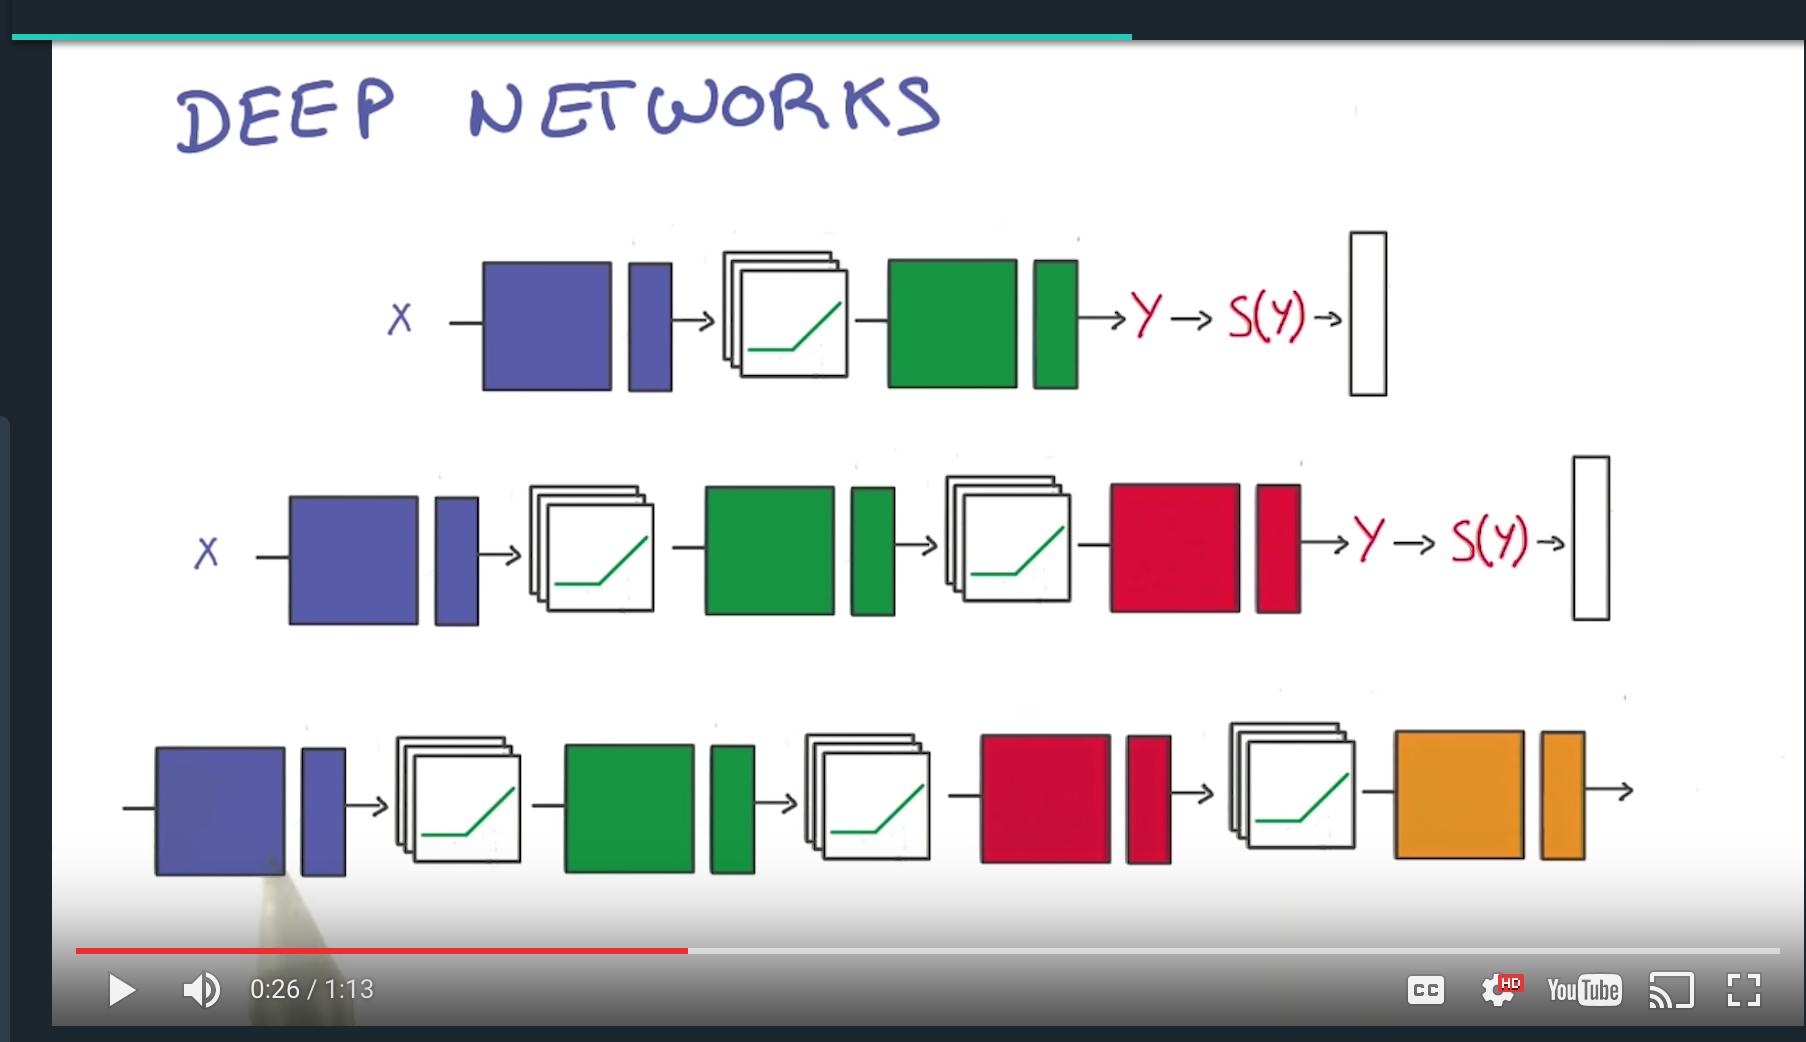 DEEP NETWORKS
X Y S(Y)
X Y S(Y)
0:26 / 1:13
CC HD YouTube